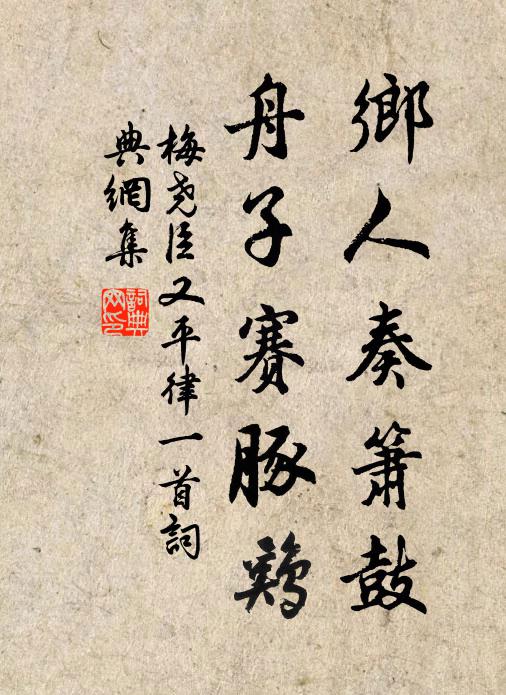 鄉人奏簫鼓
舟子賽豚鷄
梅堯臣又平律一首詞
典網集
詞典網印